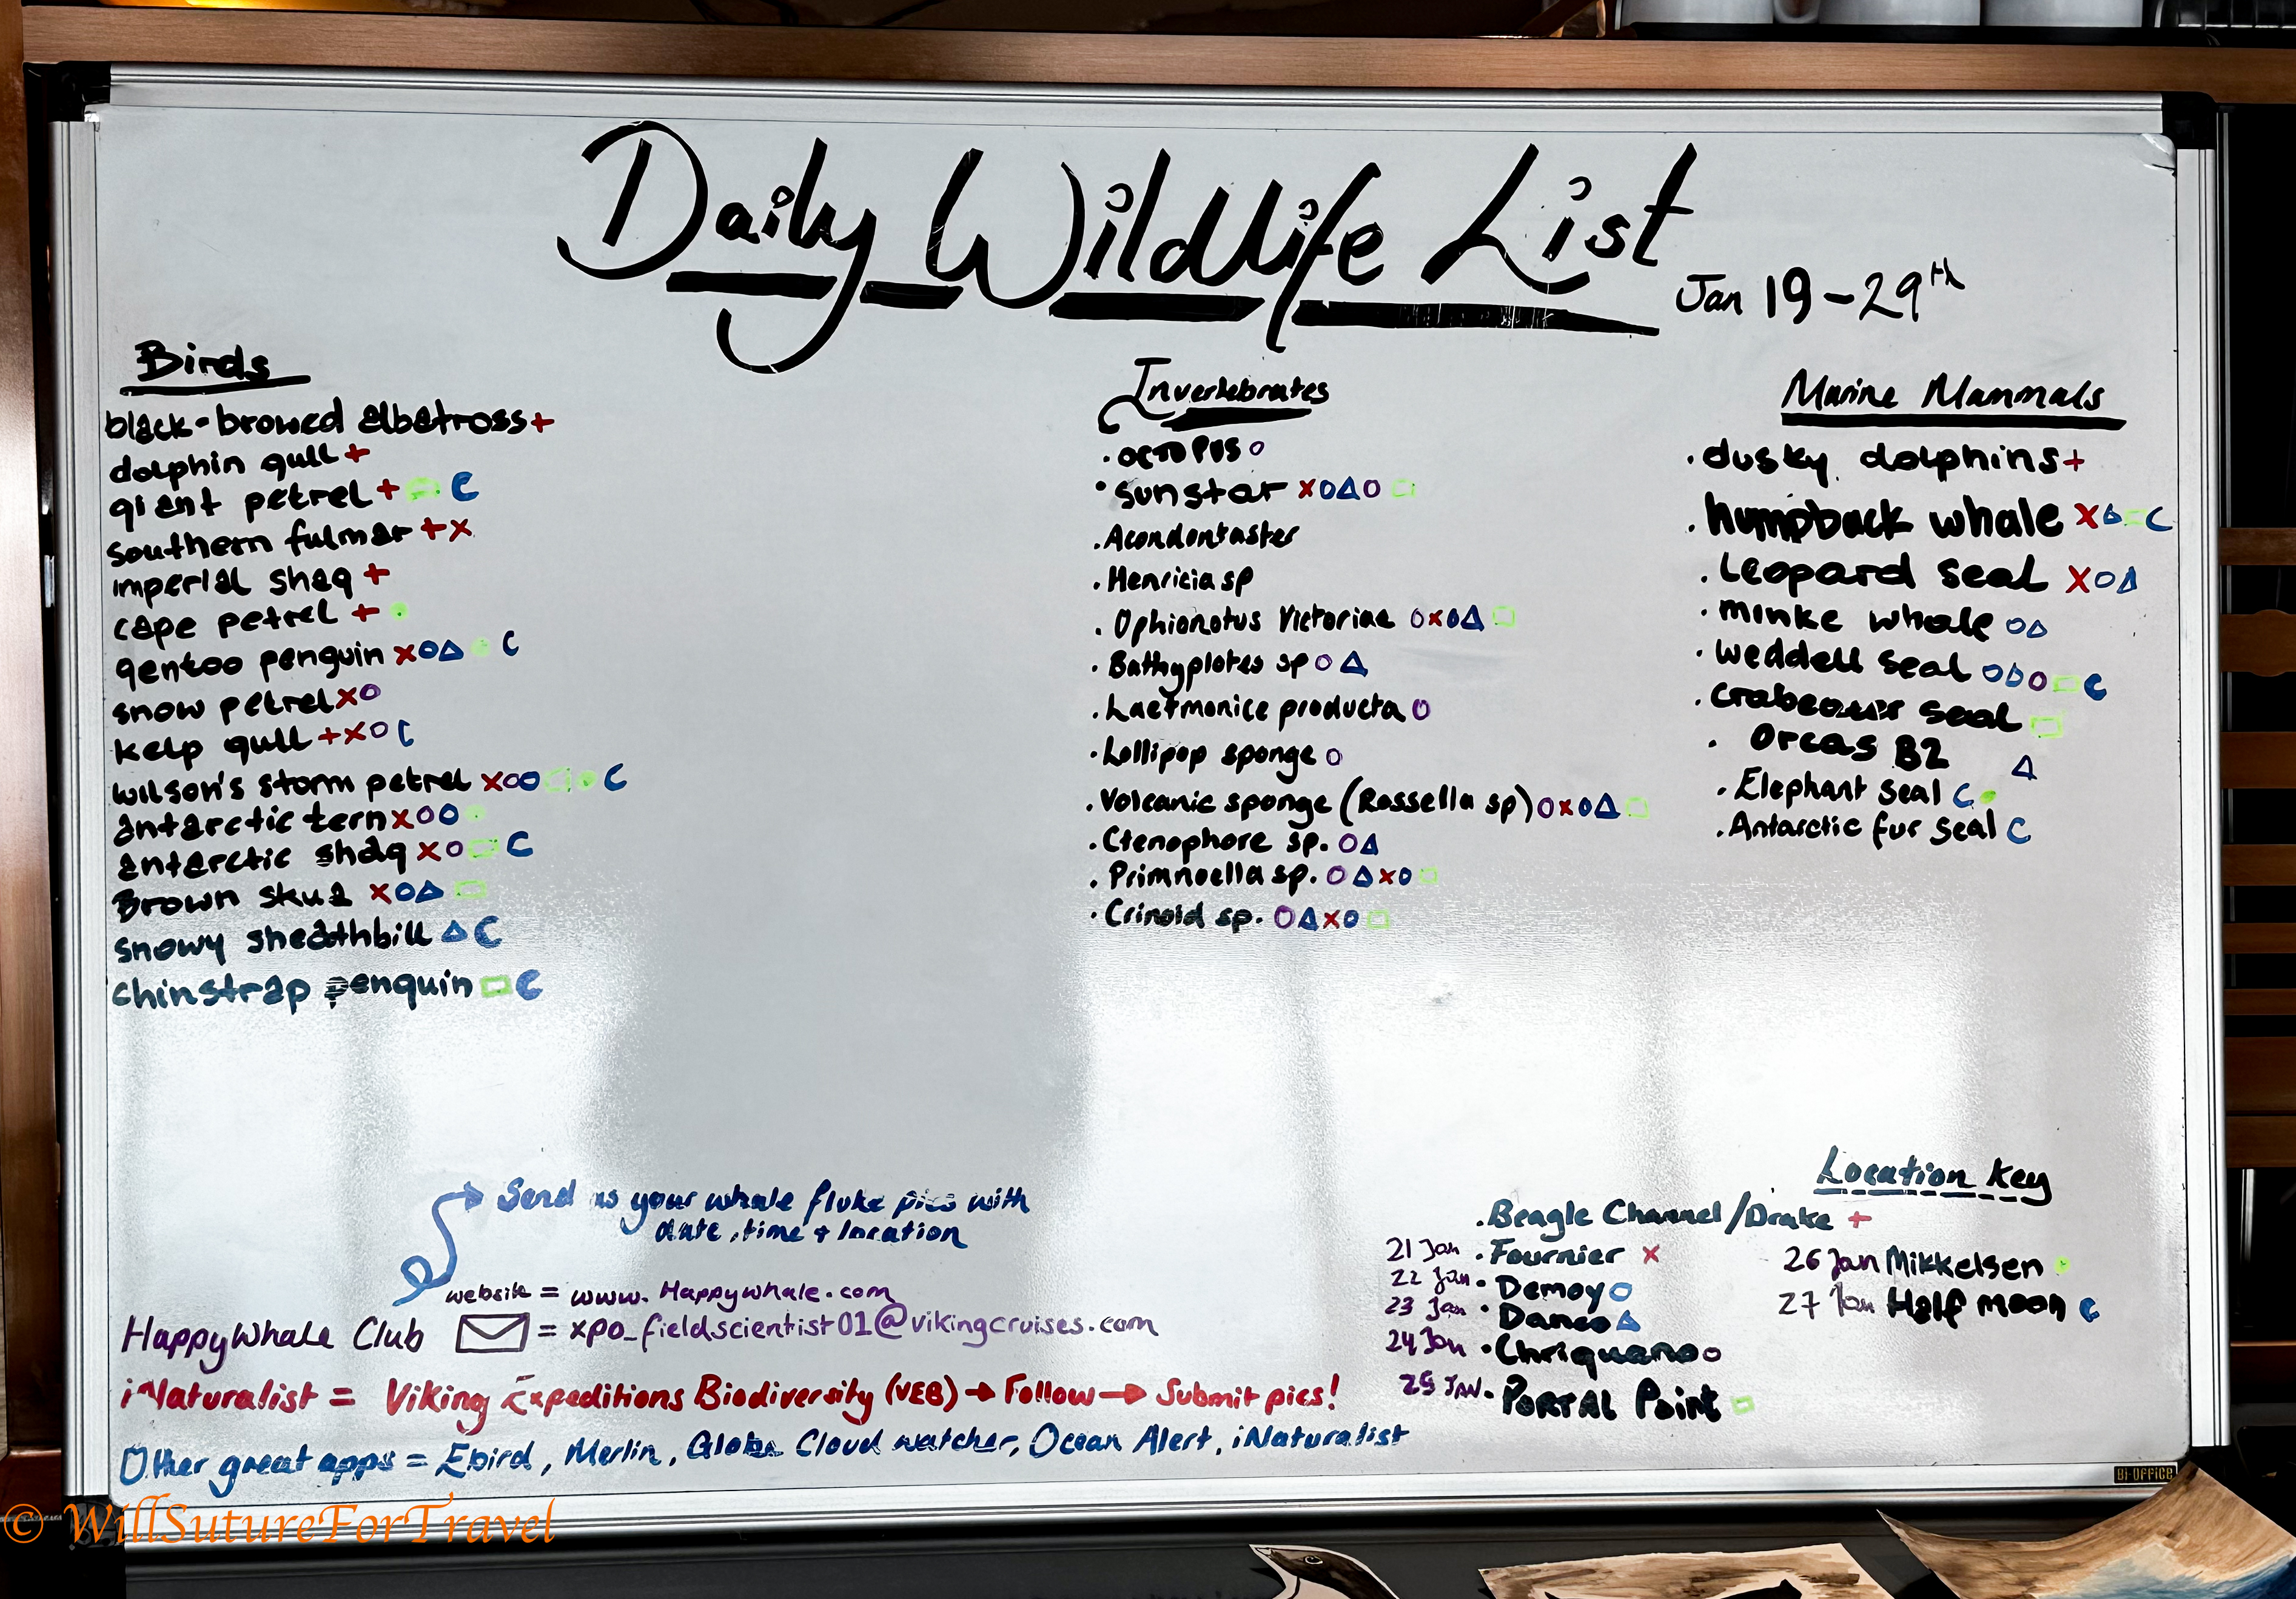 Daily Wildlife List
Jan 19-29th
Birds
black-browed albatross +
dolphin gull +
giant petrel + ▭ C
southern fulmar + x
imperial shag +
cape petrel + •
gentoo penguin x o △ • C
snow petrel x o
kelp gull + x o C
wilson's storm petrel x o o □ • C
antarctic tern x o o •
antarctic shag x o ▭ C
Brown skua x o △ ▭
snowy sheathbill △ C
chinstrap penguin ▭ C
Invertebrates
· octopus o
· sunstar x o △ o □
· Acondontaster
· Henricia sp
· Ophionotus Victoriae o x o △ □
· Bathyplotes sp o △
· Laetmonice producta o
· Lollipop sponge o
· Volcanic sponge (Rossella sp) o x o △ □
· Ctenophore sp. o △
· Primnoella sp. o △ x o □
· Crinoid sp. o △ x o □
Marine Mammals
· dusky dolphins +
· humpback whale x △ ▭ C
· Leopard seal x o △
· minke whale o △
· weddell seal o △ o ▭ C
· crabeater seal ▭
· Orcas B2 △
· Elephant seal C •
· Antarctic fur seal C
Send us your whale fluke pics with
date, time + location
website = www.Happywhale.com
HappyWhale Club = xpo_fieldscientist01@vikingcruises.com
iNaturalist = Viking Expeditions Biodiversity (VEB) → Follow → Submit pics!
Other great apps = Ebird, Merlin, Globe Cloud watcher, Ocean Alert, iNaturalist
Location Key
· Beagle Channel/Drake +
21 Jan · Fournier x
22 Jan · Demoy o
23 Jan · Danco △
24 Jan · Chriguano o
25 JAN · PORTAL Point ▭
26 Jan Mikkelsen •
27 Jan Half moon C
Bi-OFFiCE
© WillSutureForTravel